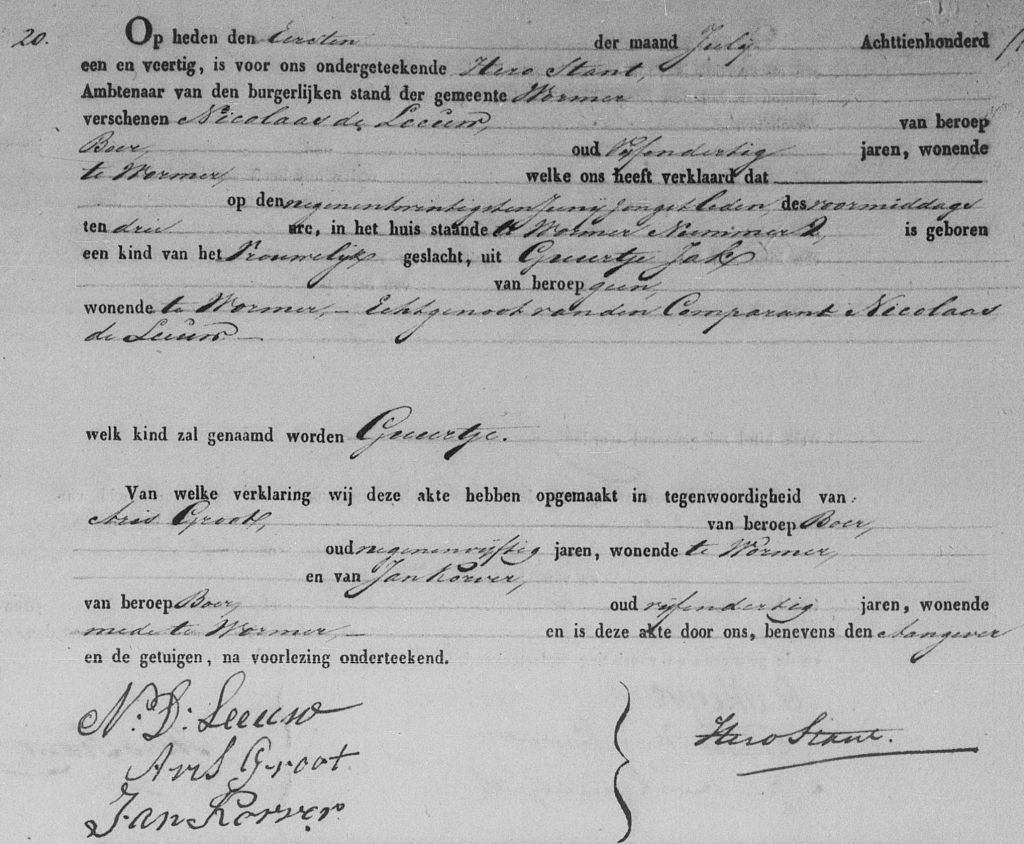 20.
Op heden den Eersten der maand July Achttienhonderd
een en veertig, is voor ons ondergeteekende Hero Stant
Ambtenaar van den burgerlijken stand der gemeente Wormer
verschenen Nicolaas de Leeuw, van beroep
Boer, oud Vijfendertig jaren, wonende
te Wormer, welke ons heeft verklaard dat
op den negenentwintigsten Junij Jongstleden, des voormiddags
ten drie ure, in het huis staande te Wormer Nummer 2, is geboren
een kind van het Vrouwelijk geslacht, uit Guurtje Jak
van beroep geen,
wonende te Wormer, — Echtgenoot van den Comparant Nicolaas
de Leeuw —
welk kind zal genaamd worden Guurtje.
Van welke verklaring wij deze akte hebben opgemaakt in tegenwoordigheid van
Aris Groot, van beroep Boer,
oud negenenvijftig jaren, wonende te Wormer,
en van Jan Korver,
van beroep Boer, oud vijfendertig jaren, wonende
mede te Wormer, — en is deze akte door ons, benevens den Aangever
en de getuigen, na voorlezing onderteekend.
N: D: Leeuw
Aris Groot
Hero Stant.
Jan Korver